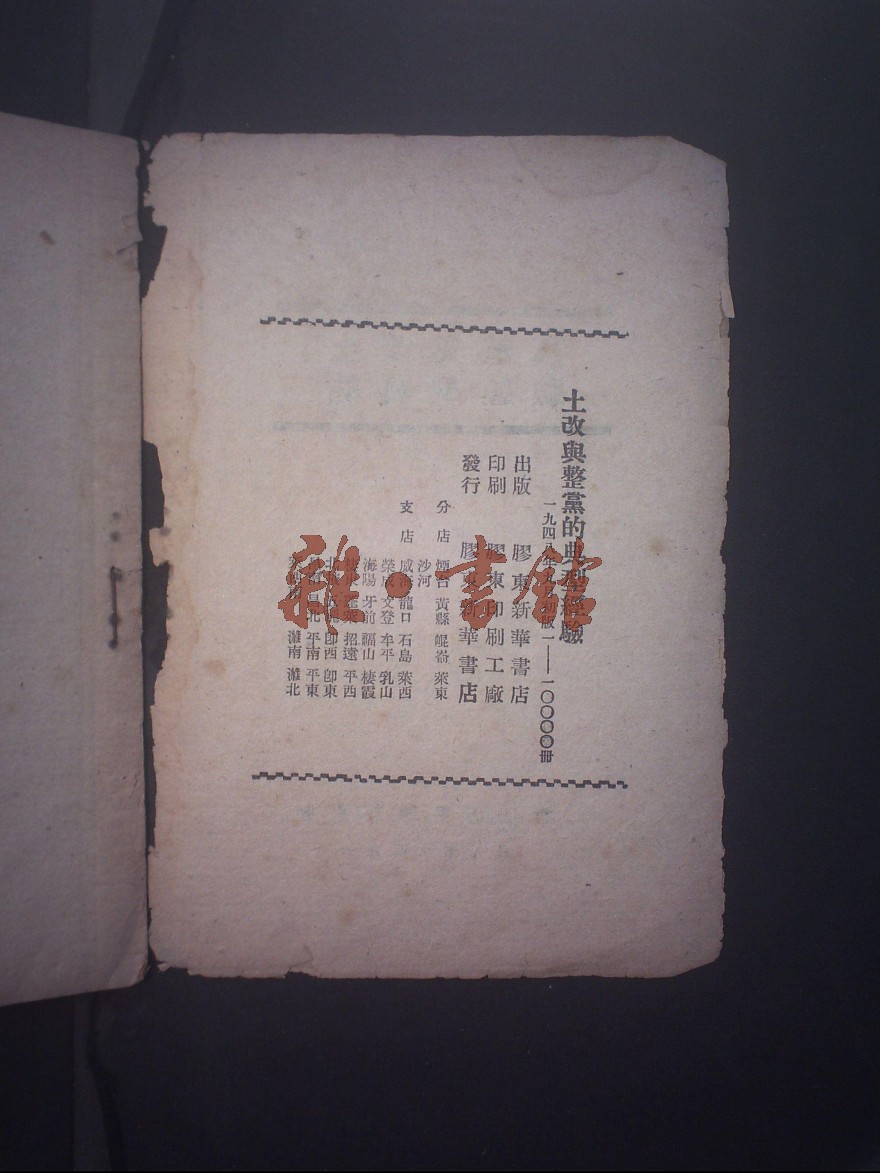 土改與整黨的典型經驗
一九四八年九月初版 一——一〇〇〇〇冊
出版 膠東新華書店
印刷 膠東印刷工廠
發行 膠東新華書店
分店 煙台 黃縣 崐嵛 萊東
沙河
支店 威海 龍口 石島 萊西
榮成 文登 牟平 乳山
海陽 牙前 福山 棲霞
招遠 平西
即西 即東
北 平南 平東
濰南 濰北
雅·書館